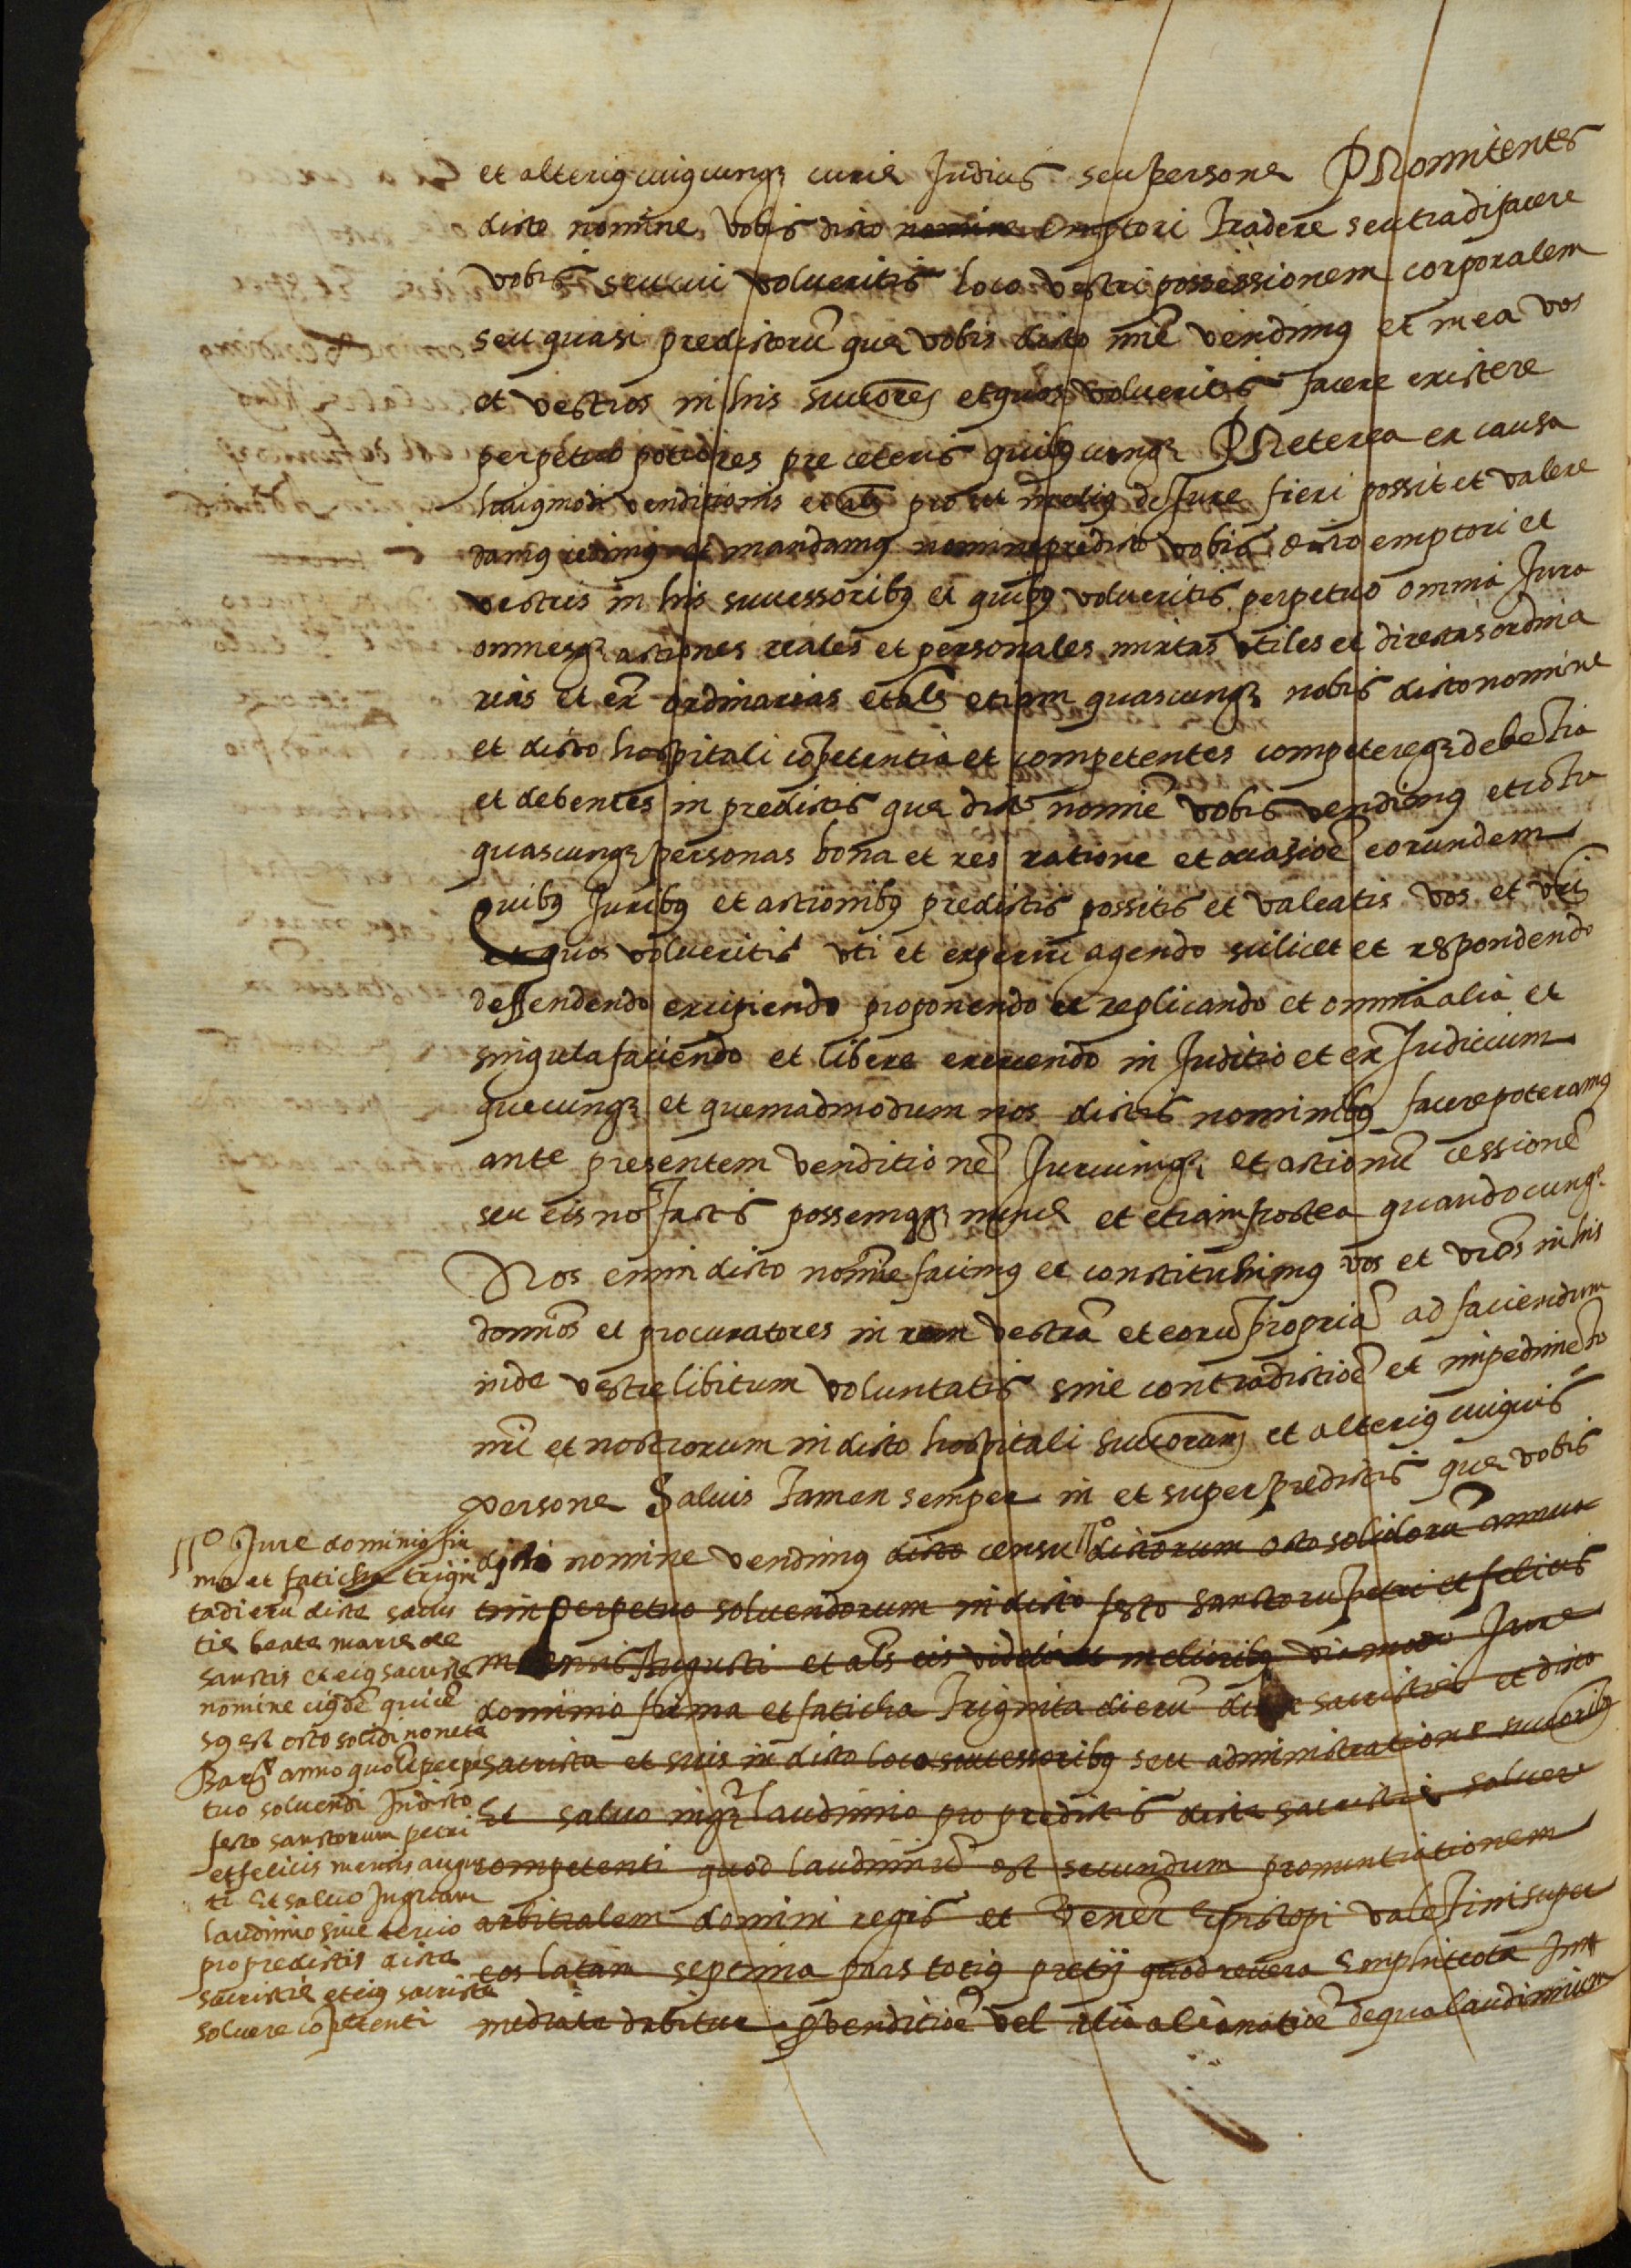 et alteriꝰ cuiꝰcunqꝫ curiæ Judicis seu persone PRomittentes
dicto nomine, vobis dicto nomine emptori Tradere seu tradi facere
vobis seu cui volueritis loco vestri possessionem corporalem
seu quasi predictorũ quæ vobis dicto nõie vendimꝰ et in ea vos
et vestros in his succores et quos volueritis facere existere
perpetuo potiores pre ceteris quibꝰcunqꝫ PReterea ex causa
huiꝰmodi venditionis et als pro ut meliꝰ de Jure fieri possit et valere
damꝰ cedimꝰ et mandamꝰ nomine predicto vobis dicto emptori et
vestris in his successoribꝰ et quibꝰ volueritis perpetuo omnia Jura
omnesqꝫ actiones reales et personales mixtas vtiles et directas ordina
rias et ex ordinarias et als etiam quascunqꝫ nobis dicto nomine
et dicto hospitali cõpetentia et competentes competereqꝫ debẽtia
et debentes in predictis quæ dicto nomiẽ vobis vendimꝰ et cõtra
quascunqꝫ personas bona et res ratione et occasioẽ eorundem
quibꝰ Juribꝰ et actionibꝰ predictis possitis et valeatis vos et vri
et quos volueritis vti et experiri agendo scilicet et respondendo
deffendendo excipiendo proponendo et replicando et omnia alia et
singula faciendo et libere exercendo in Juditio et ex Judicium
quecunqꝫ et quemadmodum nos dictis nominibꝰ facere poteramꝰ
ante presentem venditionẽ Juriumqꝫ et actionũ cessionẽ
seu eis nõ factis possemꝰqꝫ nunc et etiam postea quandocunqꝫ
Nos enim dicto nomine facimꝰ et constituhimꝰ vos et vros in his
dominos et procuratores in rem vestrã et eorũ propriã ad faciendum
inde vestre libitum voluntatis sine contradictioẽ et impedimẽto
nri et nostrorum in dicto hospitali succorum et alteriꝰ cuiꝰvis
persone Saluis Tamen semper in et super predictis quæ vobis
dicto nomine vendimꝰ dicto censu dictorum octo solidorũ annua
tim perpetuo soluendorum in dicto festo sanctorũ petri et felicis
mensis Augusti et als eis videbitur melioribꝰ via modo Jure
dominio firma et faticha Triginta dierũ dicte sacristie et dicto
sacrista et suis in dicto loco successoribꝰ seu administratione succoribꝰ
Et saluo inqꝫ laudimio pro predictis dicte sacristie soluere
competenti quod laudimiũ est secundum pronuntiationem
arbitralem domini regis et Vener Episcopi valẽtini super
eos latam septima pars totiꝰ pretij quod revera Emphiteota Im
mediate dabitur p̱ venditioẽ vel alia alienatioẽ de qua laudimium
Jure dominio fir
ma et faticha trigin
ta dierũ dicte sacris
tie beate marie de
sanctis et eiꝰ sacriste
nomine eiꝰdẽ qui cẽ
sꝰ est octo solidi monete
Barꝰ anno quolꝫ perpe
tuo soluendi In dicto
festo sanctorum petri
et felicis mensis augus
ti Et saluo Inquam
laudimio siue tercio
pro predictis dicte
sacristie et eiꝰ sacriste
soluere cõpetenti